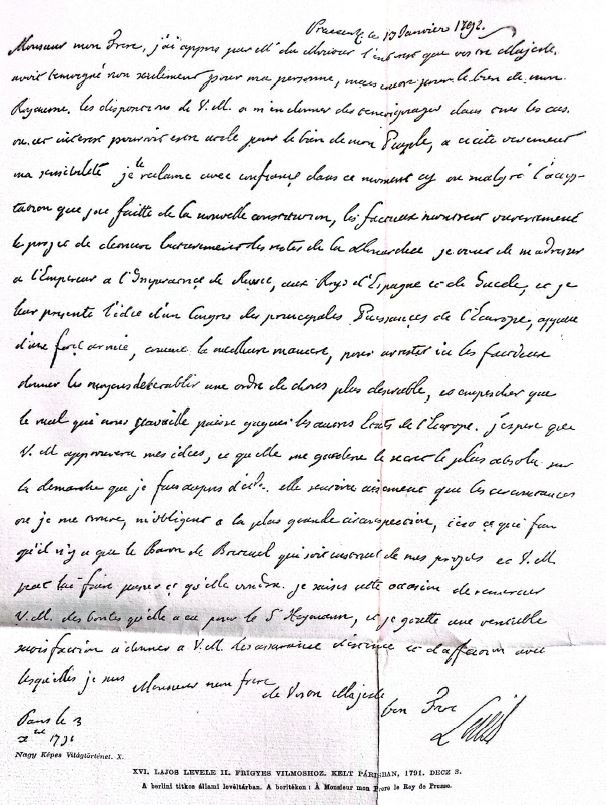 Praesent. le 13 Janviers 1792.
Monsieur mon Frere, j'ai appris par Mr du Moutier l'interest que votre Majesté
avoit temoigné non seulement pour ma personne, mais encore pour le bien de mon
Royaume. les dispositions de V. M. a m'en donner des temoignages dans tous les cas
ou cet interest pourroit estre utile pour le bien de mon Peuple, a excité vivement
ma sensibilité je le reclame avec confiance dans ce moment cy ou malgré l'accep-
tation que j'ai faitte de la nouvelle constitution, les factieux montrent ouvertement
le projet de detruire entierement les restes de la Monarchie je viens de m'adresser
a l'Empereur a l'Imperatrice de Russie, aux Roys d'Espagne et de Suede, et je
leur presente l'idée d'un Congres des principales Puissances de l'Europe, appuié
d'une force armée, comme la meilleure maniere, pour arrester ici les factieux
donner les moyens de retablir une ordre de choses plus desirable, et empescher que
le mal qui nous travaille puisse gagner les autres Etats de l'Europe. j'espere que
V. M approuvera mes idées, et qu'elle me gardera le secret le plus absolu sur
la demarche que je fais aupres d'elle. elle sentira aisement que les circonstances
ou je me trouve, m'obligent a la plus grande circonspection, c'est ce qui fait
qu'il n'y a que le Baron de Breteuil qui soit instruit de mes projets et V. M
peut lui faire passer ce qu'elle voudra. je saisis cette occasion de remercier
V. M. des bontés qu'elle a eu pour le Sr Heymann, et je goutte une veritable
satisfaction a donner a V. M. les assurances d'estime et d'affection avec
lesquelles je suis Monsieur mon frere
de Votre Majesté
bon Frere
Louis
Paris le 3
Xbre 1791
Nagy Képes Világtörténet. X.
XVI. LAJOS LEVELE II. FRIGYES VILMOSHOZ. KELT PÁRISBAN, 1791. DECZ 3.
A berlini titkos állami levéltárban. A borítékon: À Monsieur mon Frere le Roy de Prusse.